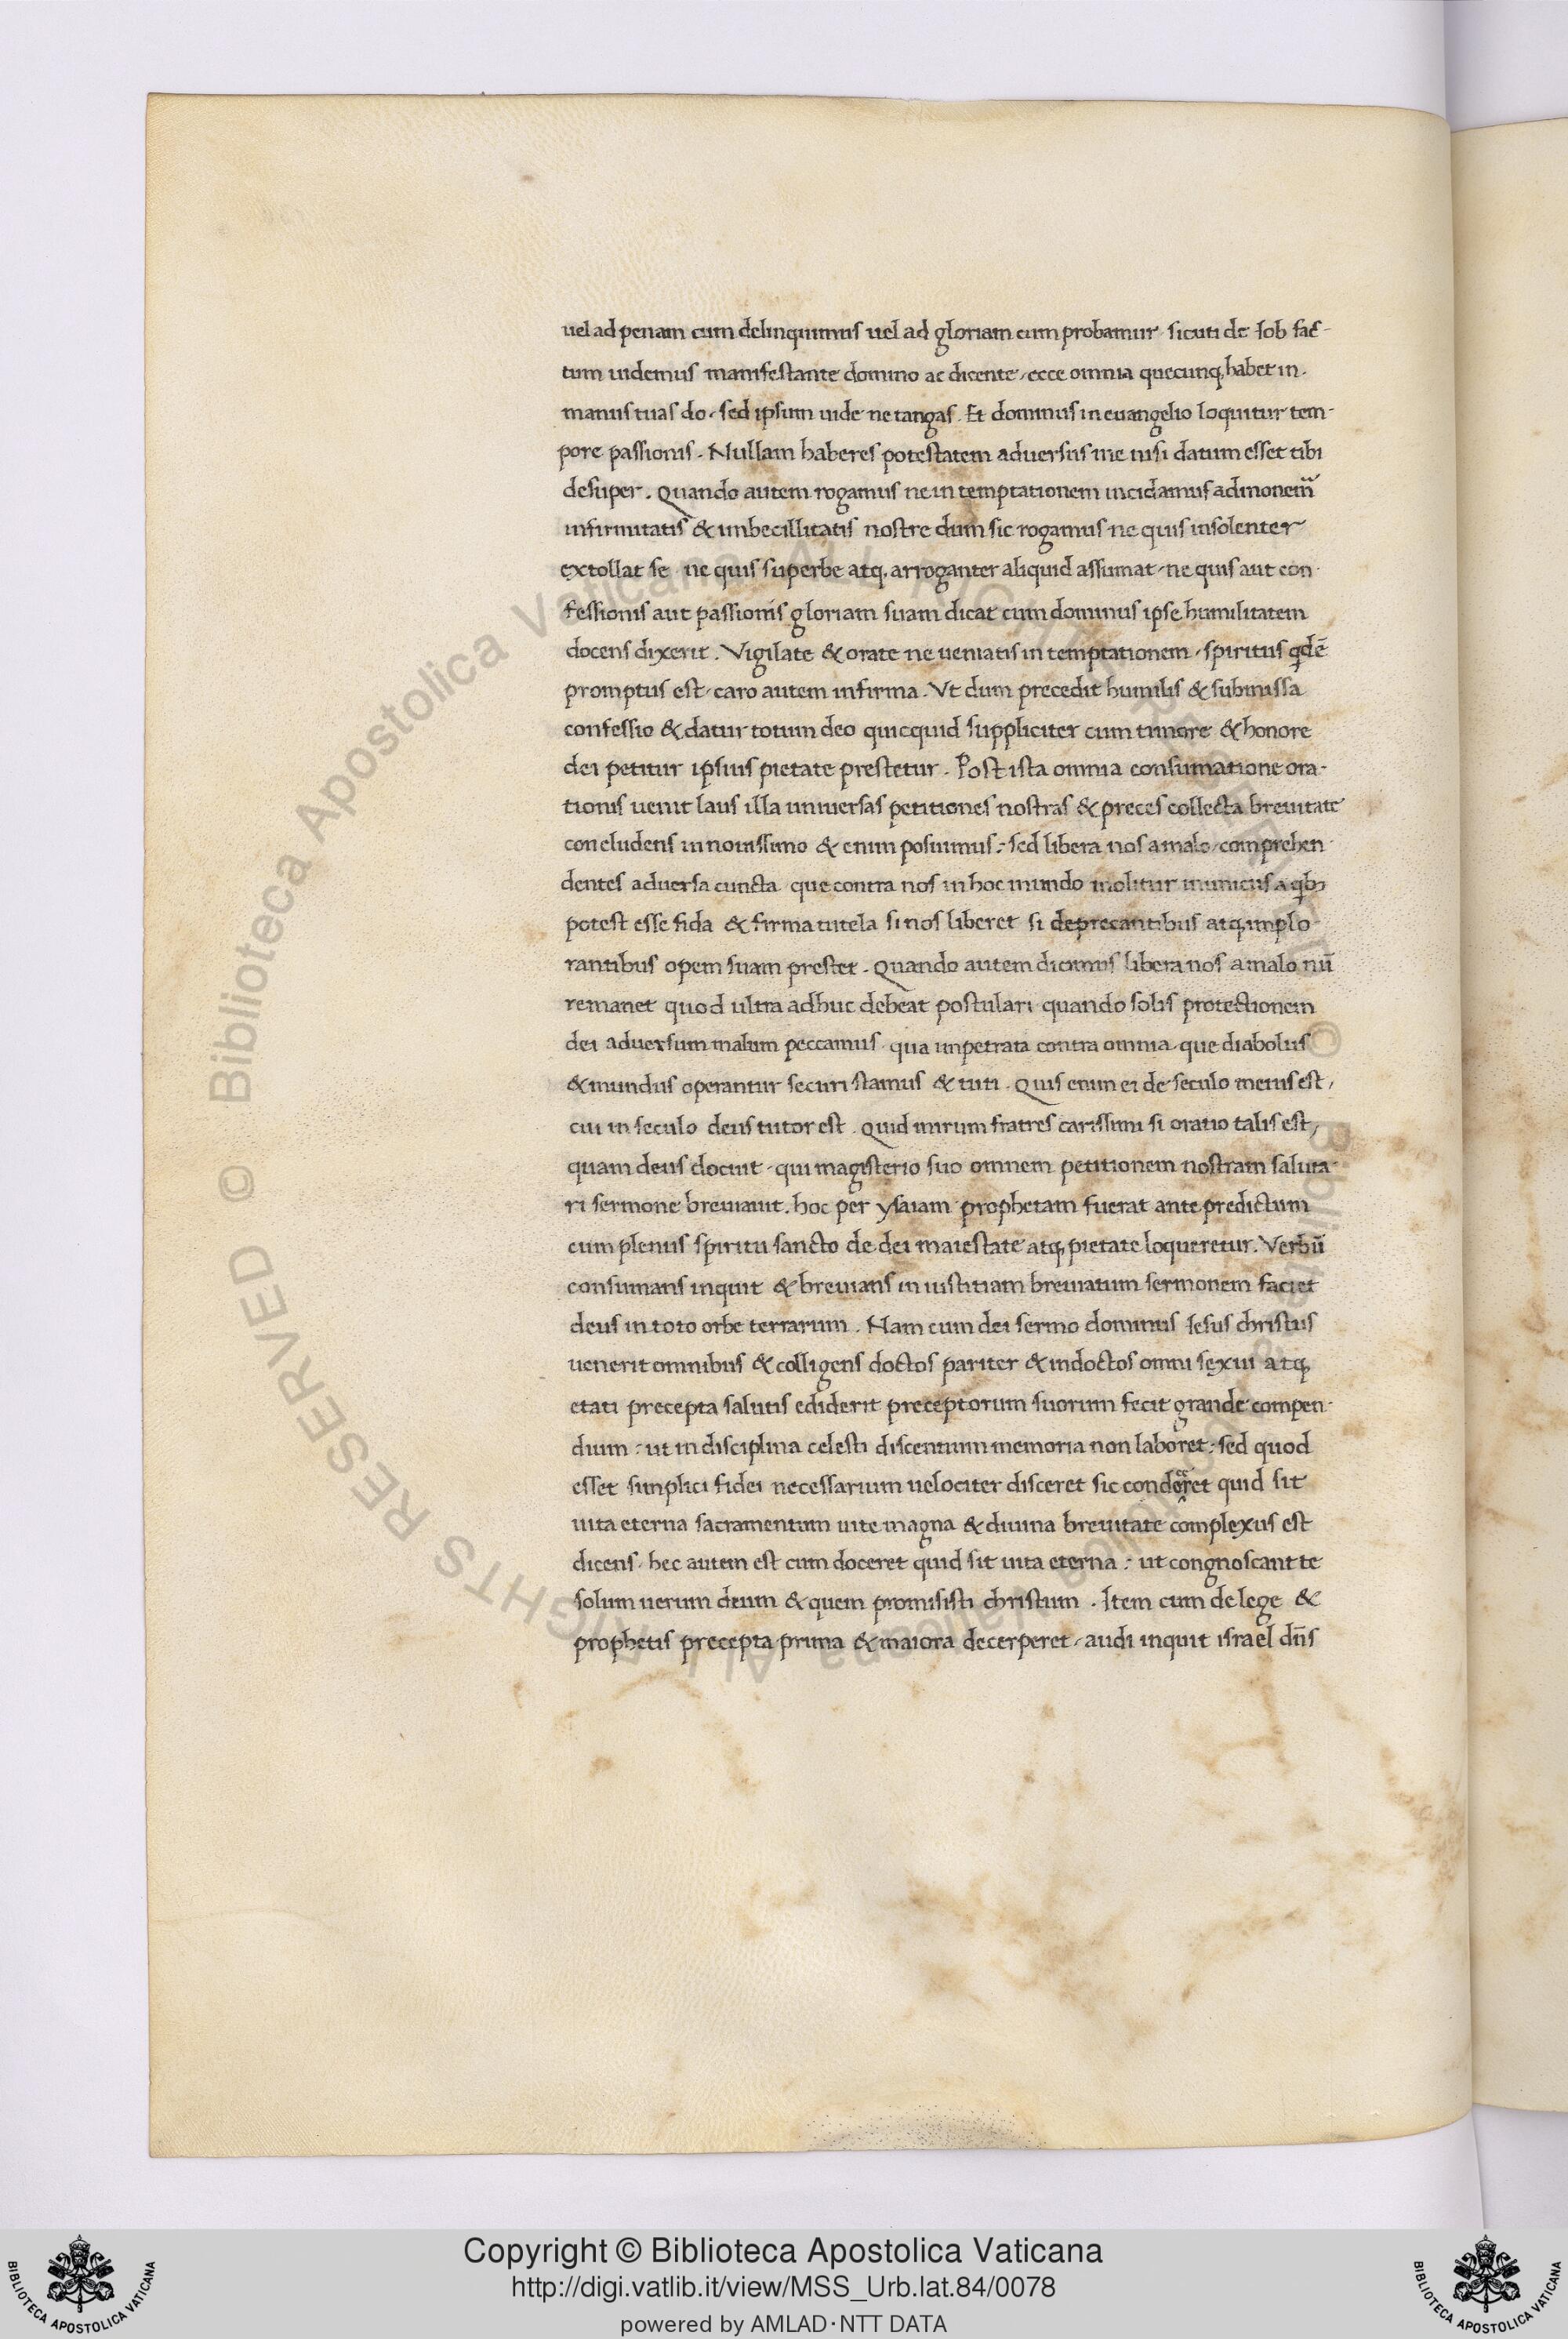 uel ad penam cum delinquimus uel ad gloriam cum probamur. sicuti de Iob fac-
tum uidemus manifestante domino ac dicente, ecce omnia quecunq; habet in.
manus tuas do, sed ipsum uide ne tangas. Et dominus in euangelio loquitur tem-
pore passionis. Nullam haberes potestatem aduersus me nisi datum esset tibi
desuper. Quando autem rogamus ne in temptationem incidamus admonem̃
infirmitatis & imbecillitatis nostre dum sic rogamus ne quis insolenter
extollat se ne quis superbe atq; arroganter aliquid assumat, ne quis aut con-
fessionis aut passionis gloriam suam dicat cum dominus ipse humilitatem
docens dixerit. Vigilate & orate ne ueniatis in temptationem, spiritus qdē
promptus est, caro autem infirma. Vt dum precedit humilis & submissa
confessio & datur totum deo quicquid suppliciter cum timore & honore
dei petitur ipsius pietate prestetur. Post ista omnia consumatione ora-
tionis uenit laus illa uniuersas petitiones nostras & preces collecta breuitate
concludens in nouissimo & enim posuimus: sed libera nos a malo, comprehen-
dentes aduersa cuncta que contra nos in hoc mundo molitur inimicus a qb;
potest esse fida & firma tutela si nos liberet si deprecantibus atq; implo-
rantibus opem suam prestet. Quando autem dicimus libera nos a malo nū
remanet quod ultra adhuc debeat postulari quando solis protectionem
dei aduersum malum peccamus. qua impetrata contra omnia que diabolus
& mundus operantur securi stamus & tuti. Quis enim ei de seculo metus est,
cui in seculo deus tutor est. Quid mirum fratres carissimi si oratio talis est,
quam deus docuit, qui magisterio suo omnem petitionem nostram saluta-
ri sermone breuiauit. hoc per ysaiam prophetam fuerat ante predictum
cum plenus spiritu sancto de dei maiestate atq; pietate loqueretur. Verbū
consumans inquit & breuians in iustitiam breuiatum sermonem faciet
deus in toto orbe terrarum. Nam cum dei sermo dominus Iesus christus
uenerit omnibus & colligens doctos pariter & indoctos omni sexui atq;
etati precepta salutis ediderit preceptorum suorum fecit grande compen-
dium: ut in disciplina celesti discentium memoria non laboret: sed quod
esset simplici fidei necessarium uelociter disceret sic conderet quid sit
uita eterna sacramentum uite magna & diuina breuitate complexus est
dicens. hec autem est cum doceret quid sit uita eterna: ut congnoscant te
solum uerum deum & quem promisisti christum. Item cum de lege &
prophetis precepta prima & maiora decerperet, audi inquit israel dn̄s
Copyright © Biblioteca Apostolica Vaticana
http://digi.vatlib.it/view/MSS_Urb.lat.84/0078
powered by AMLAD·NTT DATA